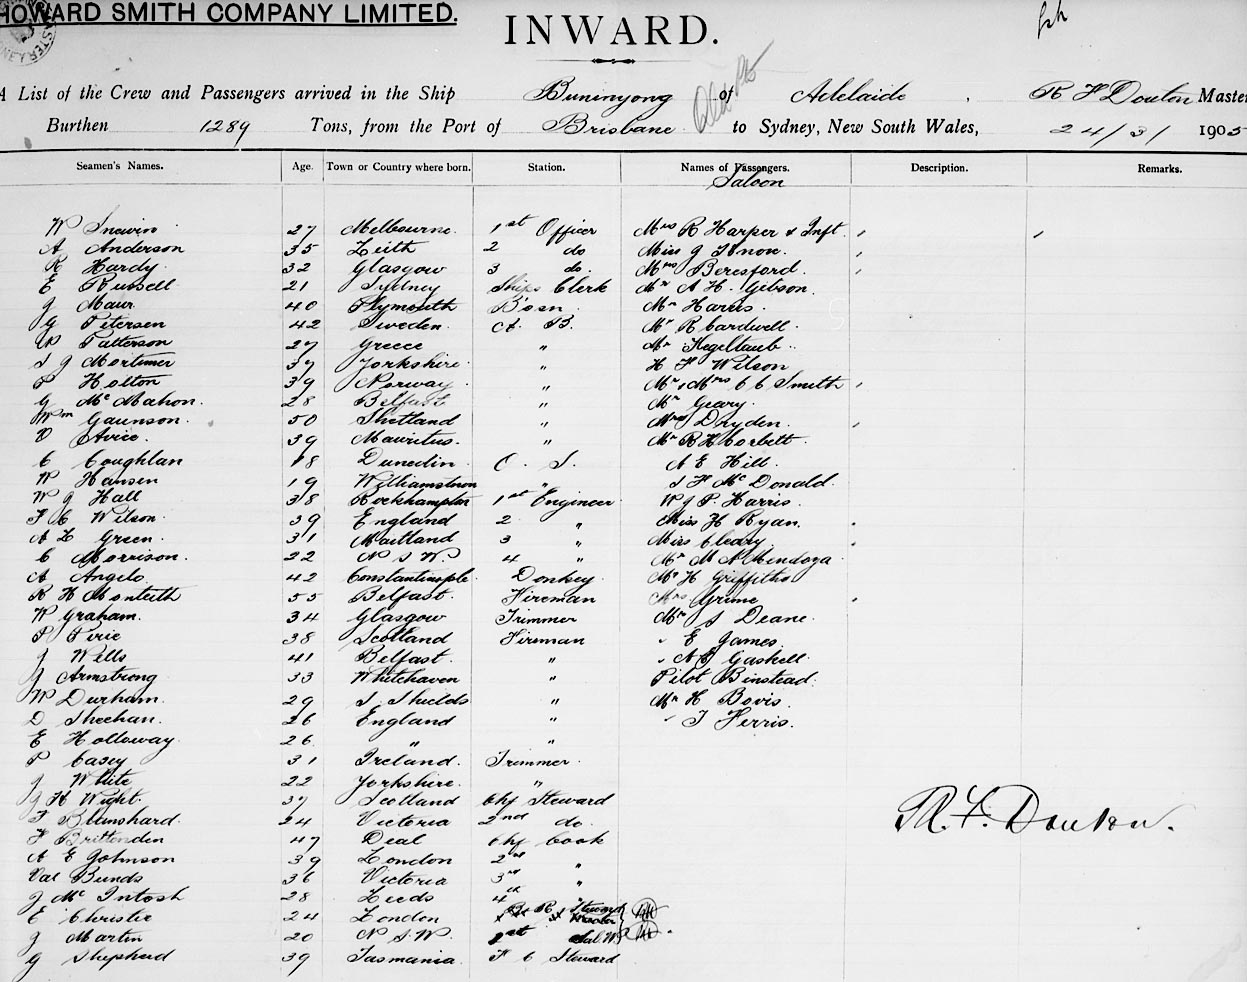 HOWARD SMITH COMPANY LIMITED.
INWARD.
A List of the Crew and Passengers arrived in the Ship Buninyong of Adelaide, R F Douton Master
Burthen 1289 Tons, from the Port of Brisbane to Sydney, New South Wales, 24/3/ 1905
Seamen's Names. Age. Town or Country where born. Station. Names of Passengers. Description. Remarks.
Saloon
W Snewin 27 Melbourne 1st Officer Mrs R Harper & Inft
A Anderson 35 Leith 2 do Miss J Know
R Hardy 32 Glasgow 3 do. Mrs Beresford
E Russell 21 Sydney Ships Clerk Mr A H. Gibson
J Maur 40 Plymouth Bosn Mr Harris
G Petersen 42 Sweden A. B. Mr R Cardwell
W Patterson 27 Greece " Mr Kegeltaub
S J Mortimer 37 Yorkshire " H F Wilson
P Holton 39 Norway " Mr & Mrs C C Smith
G McMahon. 28 Belfast " Mr Geary
Wm Gaunson. 50 Shetland " Mrs Dryden
D Avice 39 Mauritus. " Mr R H Corbett
C Coughlan 18 Dunedin O. S. A E Hill
W Hansen 19 Williamstown " S F McDonald
W J Hall 38 Rockhampton 1st Engineer W J P. Harris
F C Wilson 39 England 2 " Miss H Ryan
A L Green 31 Maitland 3 " Miss Cleary
C Morrison. 22 N S W. 4 " Mr M A Mendoza
A Angelo 42 Constantinople Donkey Mr H Griffiths
R H Monteith 55 Belfast. Fireman Mrs Grime
W Graham. 34 Glasgow Trimmer Mr S Deane
P Pirie 38 Scotland Fireman " E James
J Wells 41 Belfast. " " A P Gaskell
J Armstrong 33 Whitehaven " Pilot Binstead
W Durham 29 S Shields " Mr H Bovis
D Sheehan. 26 England " " T Ferris.
E Holloway 26 " "
P Casey 31 Ireland. Trimmer
J White 22 Yorkshire. "
J H Wight. 37 Scotland Chf Steward
F Blanshard 24 Victoria 2nd do. R. F. Douton.
F Brittenden 47 Deal Chf Cook
A E Johnson 39 London 2nd "
Val Bunds 36 Victoria 3rd "
J McIntosh 28 Leeds 4th
E Christie 24 London B R Steward
J Martin 20 N S W. Sal W.
G Shepherd 39 Tasmania F C Steward